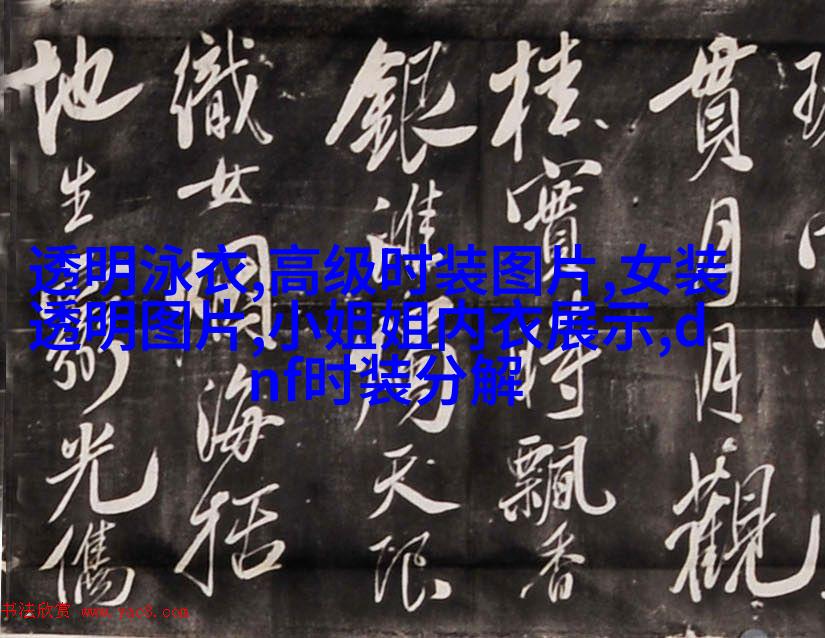 貫月月觀
桂實時飄香
銀天限
織女海
地生光
透明泳衣,高级时装图片,女装
透明图片,小姐姐内衣展示,d
nf时装分解
书法欣赏 www.yac8.com